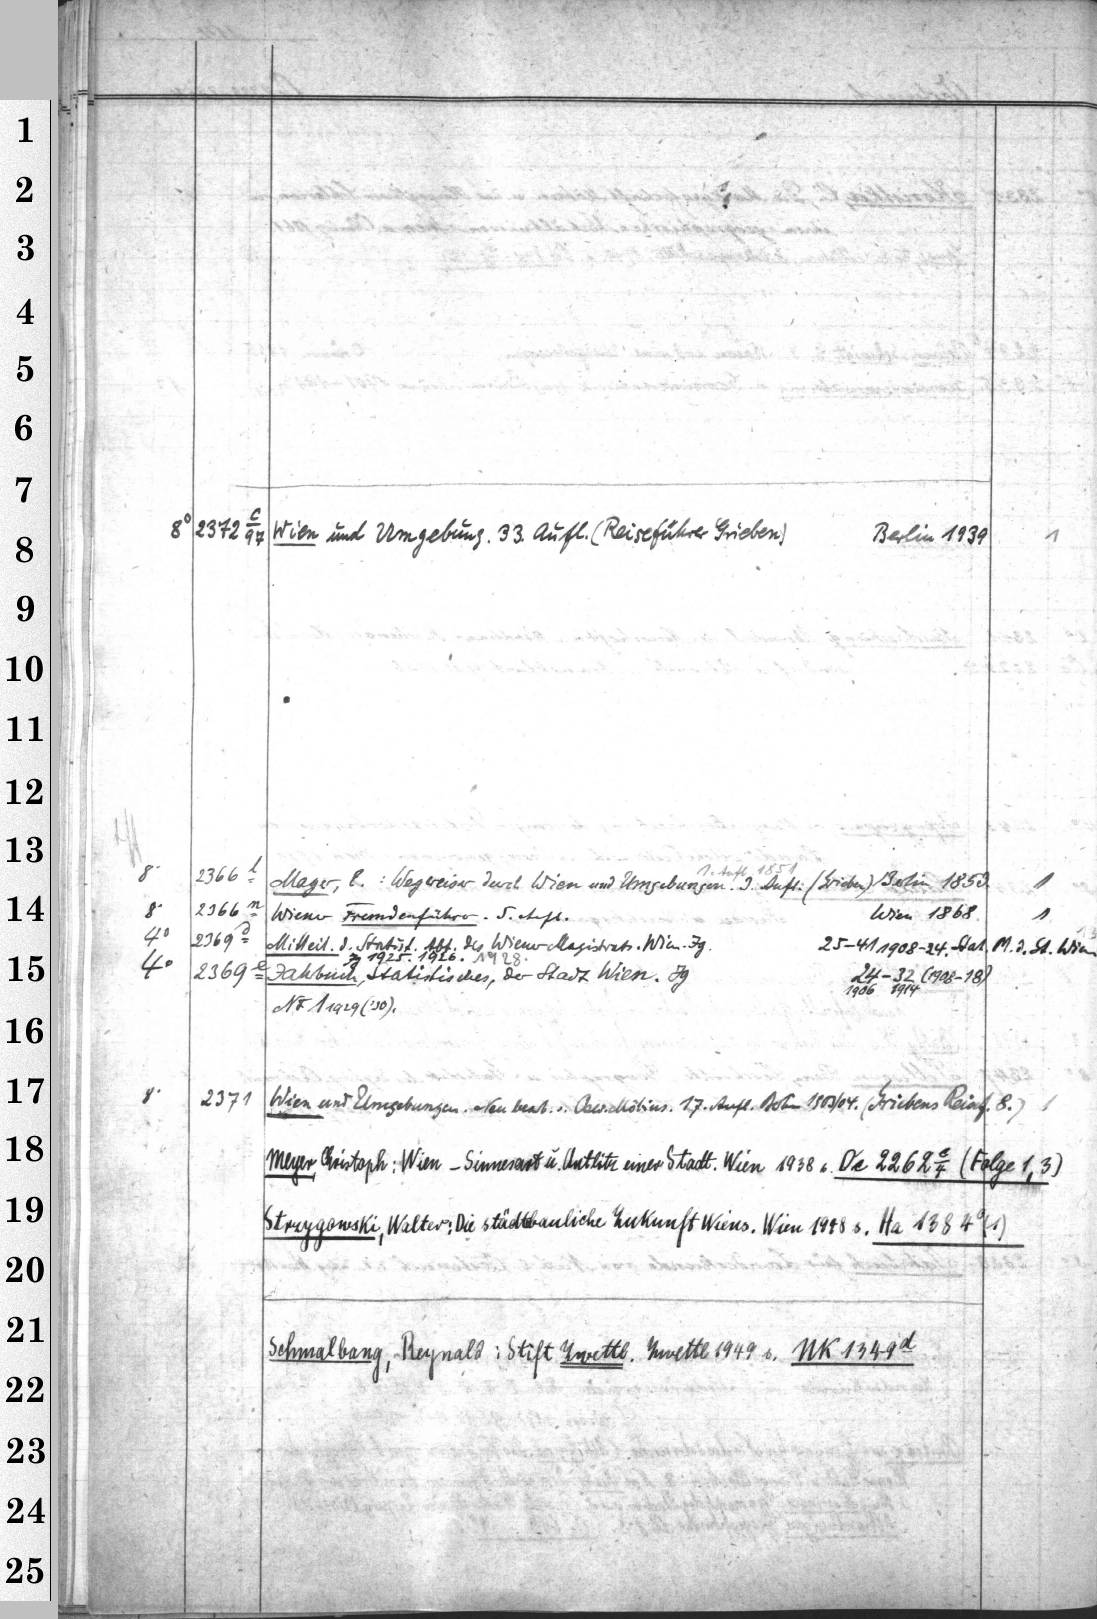 1
2
3
4
5
6
7
8° 2372 c/97 Wien und Umgebung. 33. Aufl. (Reiseführer Grieben) Berlin 1939 1
8
9
10
11
12
13
1. Aufl. 1851
8° 2366 l Mager, E. : Wegweiser durch Wien und Umgebungen. 3. Aufl. (Grieben) Berlin 1853 1
14
8° 2366 n Wiener Fremdenführer. 5. Aufl. Wien 1868. 1
4° 2369 d Mitteil. d. Statist. Abt. des Wiener Magistrats. Wien. Jg. 25-41 1908-24. Stat. M. d. St. Wien
Jg 1925. 1926. 1928.
15
4° 2369 e Jahrbuch, Statistisches, der Stadt Wien. Jg 24-32 (1908-18)
1906 1914
NF 1 1929 ('30).
16
17
8° 2371 Wien und Umgebungen. Neu bearb. v. Möbius. 17. Aufl. Bln 1903/04. (Griebens Reisef. 8.) 1
18
Meyer, Christoph : Wien – Sinnesart u. Antlitz einer Stadt. Wien 1938 s. De 2262 e/4 (Folge 1, 3)
19
Strzygowski, Walter : Die städtebauliche Zukunft Wiens. Wien 1948 s. Ha 1384 a(1)
20
21
Schmalbang, Reynald : Stift Zwettl. Zwettl 1949 s. NK 1349 d
22
23
24
25